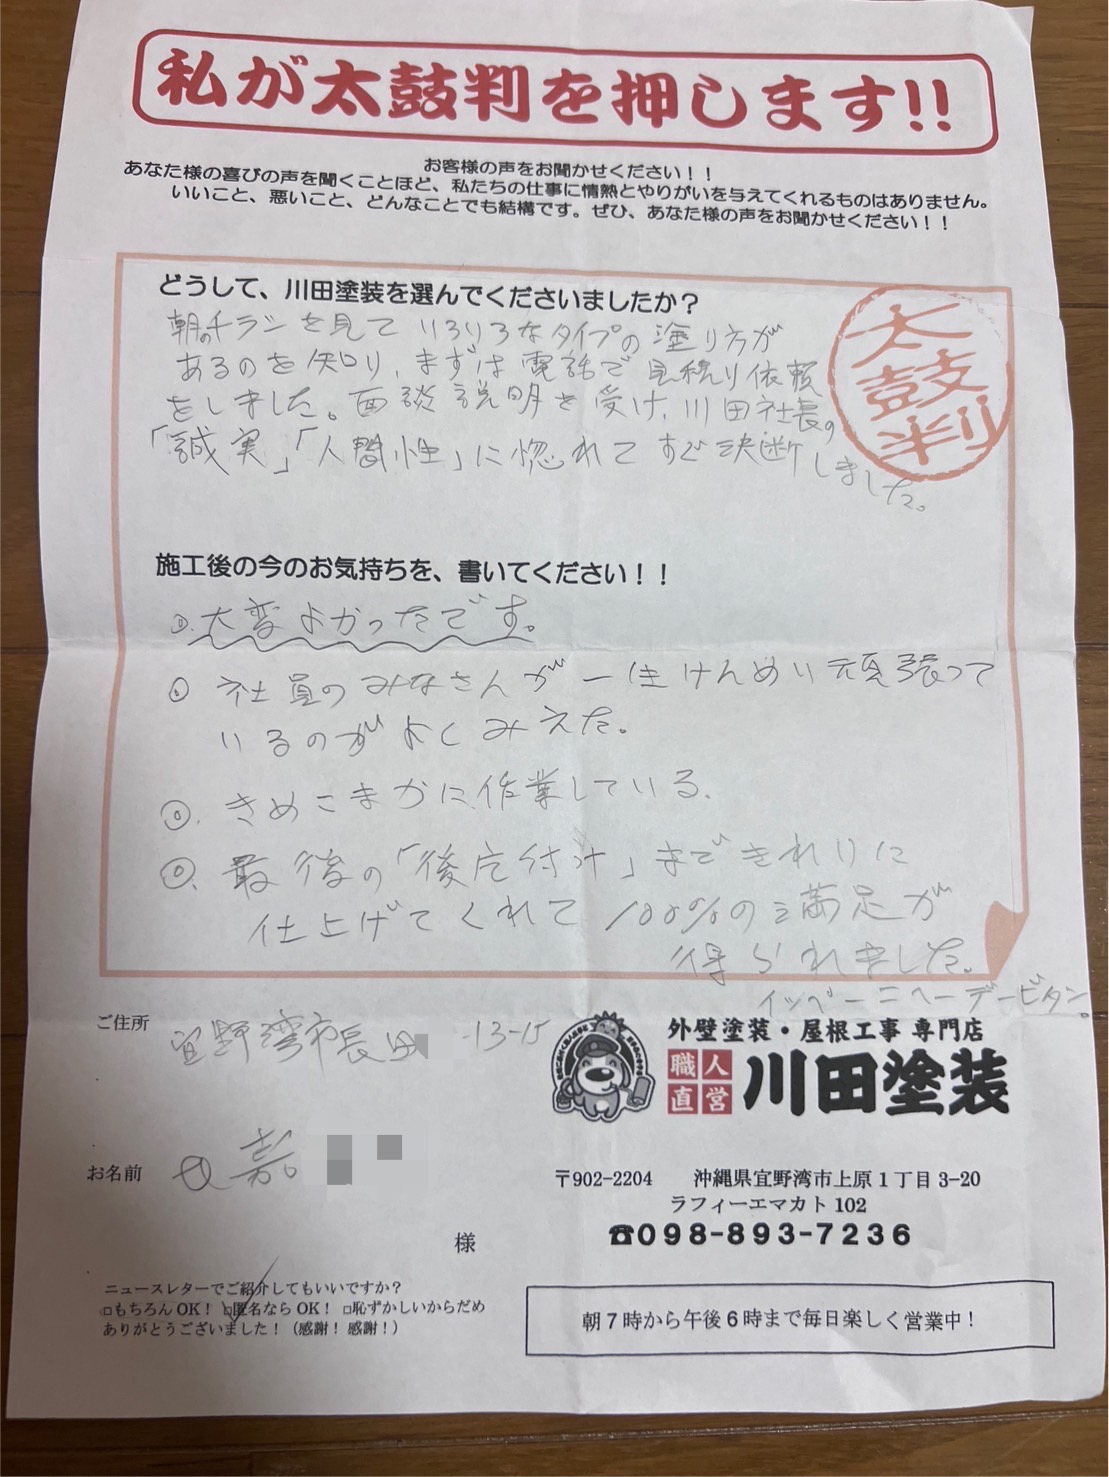 私が太鼓判を押します!!
お客様の声をお聞かせください！！
あなた様の喜びの声を聞くことほど、私たちの仕事に情熱とやりがいを与えてくれるものはありません。
いいこと、悪いこと、どんなことでも結構です。ぜひ、あなた様の声をお聞かせください！！
どうして、川田塗装を選んでくださいましたか？
朝のチラシを見ていろいろなタイプの塗り方が
あるのを知り、まずは電話で見積り依頼
をしました。面談説明を受け、川田社長の
「誠実」「人間性」に惚れてすぐ決断しました。
太鼓判
施工後の今のお気持ちを、書いてください！！
◎.大変よかったです。
◎社員のみなさんが一生けんめい頑張って
いるのがよくみえた。
◎.きめこまかに作業している.
◎.最後の「後片付け」まできれいに
仕上げてくれて100%の満足が
得られました。
イッペーニヘーデービタン。
ご住所 宜野湾市長田 -13-15
外壁塗装・屋根工事 専門店
職人直営 川田塗装
お名前 嘉
様
〒902-2204 沖縄県宜野湾市上原1丁目3-20
ラフィーエマカト 102
☎098-893-7236
ニュースレターでご紹介してもいいですか？
□もちろんOK！ ☑匿名ならOK！ □恥ずかしいからだめ
ありがとうございました！（感謝！感謝！）
朝7時から午後6時まで毎日楽しく営業中！